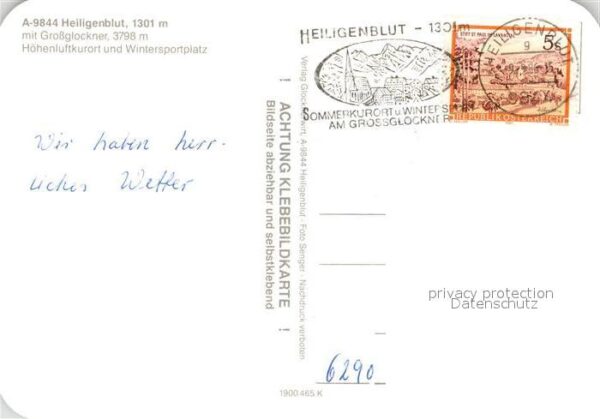 A-9844 Heiligenblut, 1301 m
mit Großglockner, 3798 m
Höhenluftkurort und Wintersportplatz
Wir haben herr-
liches Wetter
! ACHTUNG KLEBEBILDKARTE !
Bildseite abziehbar und selbstklebend
Verlag Glocknerwirt, A-9844 Heiligenblut · Foto Senger · Nachdruck verboten
1900 465 K
HEILIGENBLUT - 1301 m
SOMMERKURORT u. WINTERSP
AM GROSSGLOCKNER
STIFT ST. PAUL IM LAVANTTAL
5
REPUBLIK ÖSTERREICH
HEILIGENBLUT
9
privacy protection
Datenschutz
6290